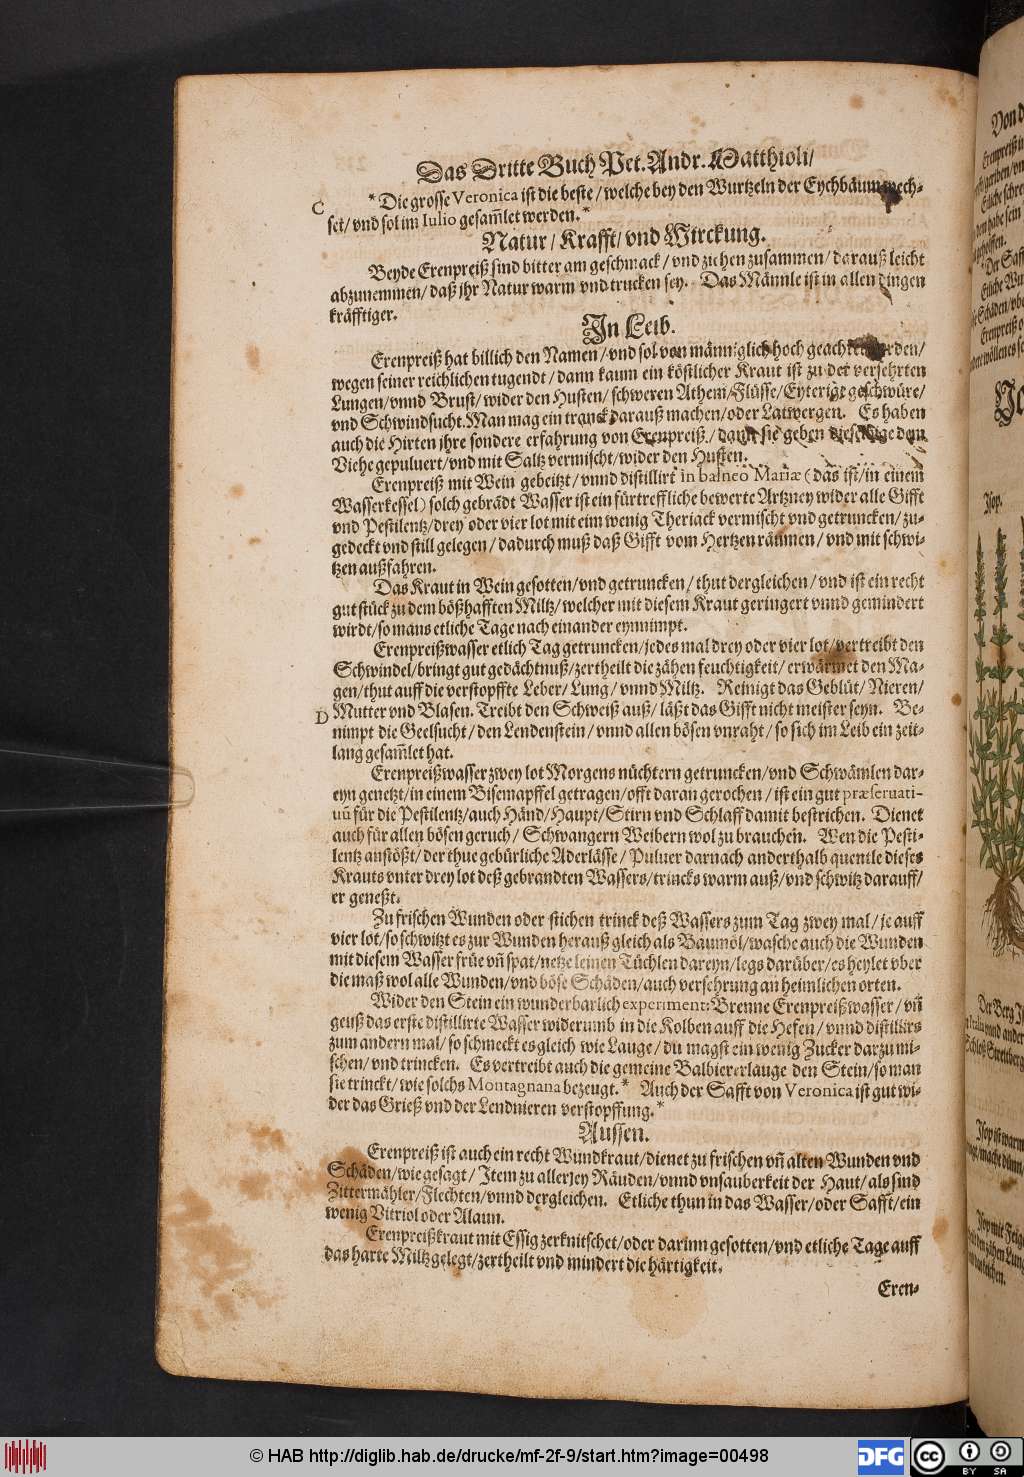 Das Dritte Buch Pet. Andr. Matthioli/
C
* Die grosse Veronica ist die beste / welche bey den Wurtzeln der Eychbäum wech-
set / vnd sol im Iulio gesam̃let werden. *
Natur / Krafft / vnd Wirckung.
Beyde Erenpreiß sind bitter am geschmack / vnd ziehen zusammen / darauß leicht
abzunemmen / daß jhr Natur warm vnd trucken sey. Das Männle ist in allen dingen
kräfftiger.
In Leib.
Erenpreiß hat billich den Namen / vnd sol von männiglich hoch geachtet werden /
wegen seiner reichlichen tugendt / dann kaum ein köstlicher Kraut ist zu der versehrten
Lungen / vnnd Brust / wider den Husten / schweren Athem / Flüsse / Eyterige geschwüre /
vnd Schwindsucht. Man mag ein tranck darauß machen / oder Latwergen. Es haben
auch die Hirten jhre sondere erfahrung von Erenpreiß / dann sie geben dieselbige dem
Viehe gepuluert / vnd mit Saltz vermischt / wider den Husten.
Erenpreiß mit Wein gebeitzt / vnnd distillirt in balneo Mariæ ( das ist / in einem
Wasserkessel ) solch gebrädt Wasser ist ein fürtreffliche bewerte Artzney wider alle Gifft
vnd Pestilentz / drey oder vier lot mit eim wenig Theriack vermischt vnd getruncken / zu-
gedeckt vnd still gelegen / dadurch muß daß Gifft vom Hertzen räumen / vnd mit schwi-
tzen außfahren.
Das Kraut in Wein gesotten / vnd getruncken / thut dergleichen / vnd ist ein recht
gut stück zu dem bößhafften Miltz / welcher mit diesem Kraut geringert vnnd gemindert
wirdt / so mans etliche Tage nach einander eynnimpt.
Erenpreißwasser etlich Tag getruncken / jedes mal drey oder vier lot / vertreibt den
Schwindel / bringt gut gedächtnuß / zertheilt die zähen feuchtigkeit / erwärmet den Ma-
gen / thut auff die verstopffte Leber / Lung / vnnd Miltz. Reinigt das Geblüt / Nieren /
D
Mutter vnd Blasen. Treibt den Schweiß auß / läßt das Gifft nicht meister seyn. Be-
nimpt die Geelsucht / den Lendenstein / vnnd allen bösen vnraht / so sich im Leib ein zeit-
lang gesam̃let hat.
Erenpreißwasser zwey lot Morgens nüchtern getruncken / vnd Schwämlen dar-
eyn genetzt / in einem Bisemapffel getragen / offt daran gerochen / ist ein gut præseruati-
uũ für die Pestilentz / auch Händ / Haupt / Stirn vnd Schlaff damit bestrichen. Dienet
auch für allen bösen geruch / Schwangern Weibern wol zu brauchen. Wen die Pesti-
lentz anstößt / der thue gebürliche Aderlässe / Puluer darnach anderthalb quentle dieses
Krauts vnter drey lot deß gebrandten Wassers / trincks warm auß / vnd schwitz darauff /
er geneßt.
Zu frischen Wunden oder stichen trinck deß Wassers zum Tag zwey mal / je auff
vier lot / so schwitzt es zur Wunden herauß gleich als Baumöl / wasche auch die Wunden
mit diesem Wasser früe vñ spat / netze leinen Tüchlen dareyn / legs darüber / es heylet vber
die maß wol alle Wunden / vnd böse Schäden / auch versehrung an heimlichen orten.
Wider den Stein ein wunderbarlich experiment: Brenne Erenpreißwasser / vñ
geuß das erste distillirte Wasser widerumb in die Kolben auff die Hefen / vnnd distillirs
zum andern mal / so schmeckt es gleich wie Lauge / du magst ein wenig Zucker darzu mi-
schen / vnd trincken. Es vertreibt auch die gemeine Balbiererlauge den Stein / so man
sie trinckt / wie solchs Montagnana bezeugt. * Auch der Safft von Veronica ist gut wi-
der das Grieß vnd der Lendnieren verstopffung. *
Aussen.
Erenpreiß ist auch ein recht Wundkraut / dienet zu frischen vñ alten Wunden vnd
Schäden / wie gesagt / Item zu allerley Räuden / vnnd vnsauberkeit der Haut / als sind
Zittermähler / Flechten / vnnd dergleichen. Etliche thun in das Wasser / oder Safft / ein
wenig Vitriol oder Alaun.
Erenpreißkraut mit Essig zerknitschet / oder darinn gesotten / vnd etliche Tage auff
das harte Miltz gelegt / zertheilt vnd mindert die härtigkeit.
Eren-
Isop.
© HAB http://diglib.hab.de/drucke/mf-2f-9/start.htm?image=00498
DFG
cc BY SA